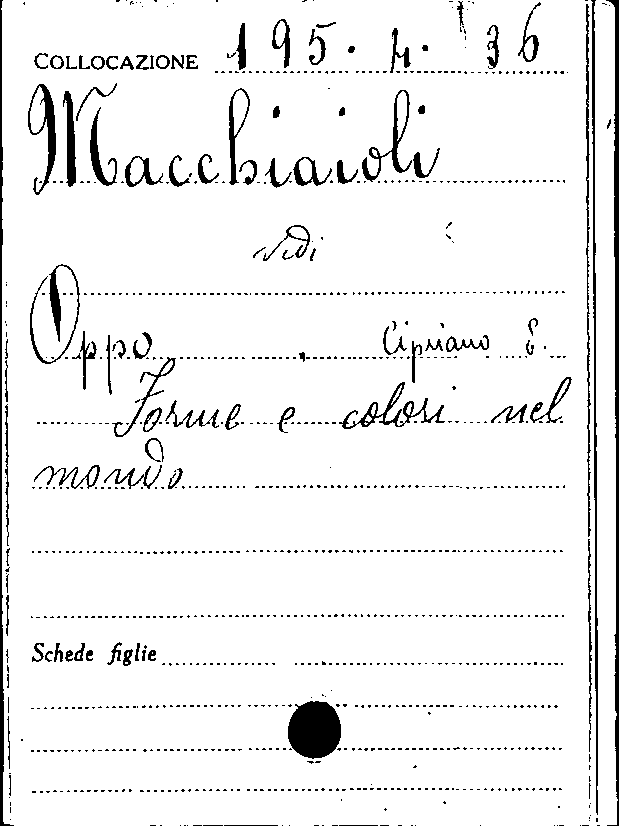 COLLOCAZIONE 195. 4. 36
Macchiaioli
vedi
Oppo, Cipriano E.
Forme e colori nel
mondo
Schede figlie